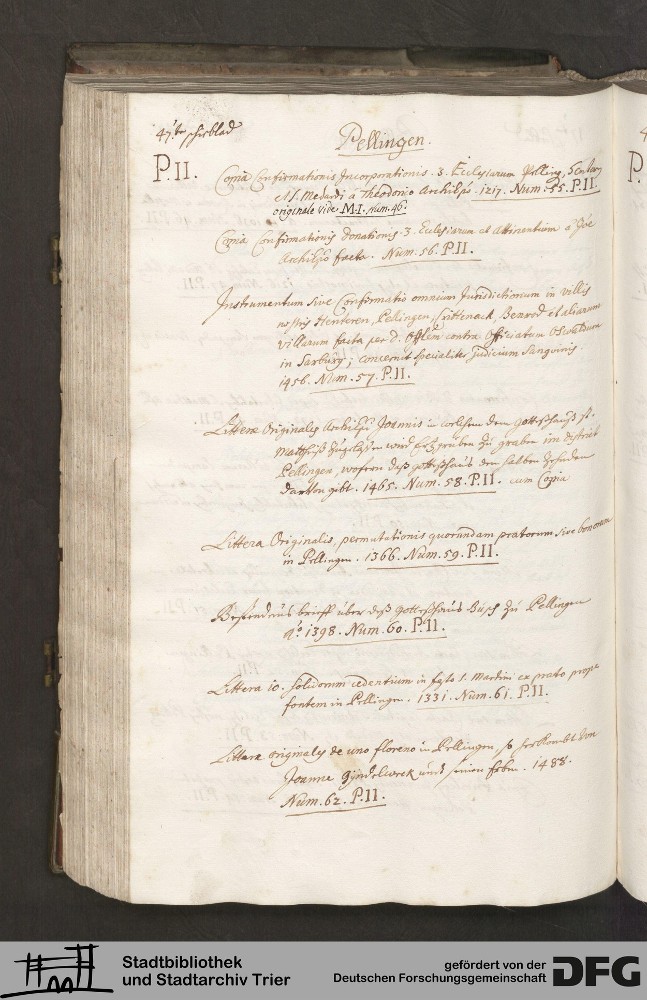 47.te schieblad
Pellingen.
P.II.
Copia Confirmationis Incorporationis. 3. Ecclesiarum Pelling, Sentzry
et S. Medardi a Theodorio Archiepō. 1217. Num. 55. P.II.
originale vide M.I. num. 46.
Copia Confirmationis Donationis. 3. Ecclesiarum et attinentium a Joē
Archiepō facta. Num. 56. P.II.
Instrumentum sive Confirmatio omnium Jurisdictionum in villis
nostris Henteren, Pellingen, Crittenach Benrod et aliarum
villarum facta per D. Offlem contra Officiatum
in Sarburg; concernit specialiter Judicium Sanguinis.
1456. Num. 57. P.II.
Litteræ Originales Archiepī Joannis in welchen dem gotteshauß St.
Matthiß zugelaßen wird Ertzgruben zu graben im district
Pellingen, wofern daß gotteshaus den halben zehenden
darvon gibt. 1465. Num. 58. P.II. cum Copia
Littera Originalis, permutationis quorundam pratorum sive bonorum
in Pellingen. 1366. Num. 59. P.II.
brieff über deß gotteßhaus Busch zu Pellingen
Aō 1398. Num. 60. P.II.
Littera 10. solidorum cedentium in festo S. Martini ex prato prope
fontem in Pellingen. 1331. Num. 61. P.II.
Littera originalis de uno floreno in Pellingen, so herkombt von
Joanne und seinen Erben. 1488.
Num. 62. P.II.
P.
Stadtbibliothek
und Stadtarchiv Trier
gefördert von der
Deutschen Forschungsgemeinschaft
DFG